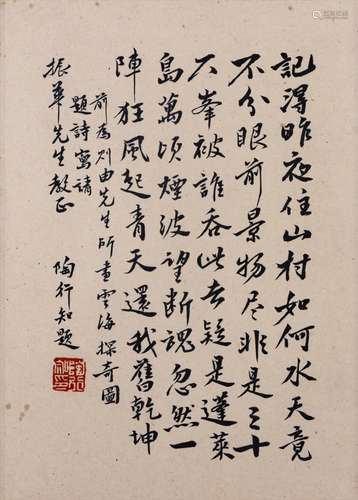 記得昨夜住山村如何水天竟
不分眼前景物尽非是三十
六峯被誰吞此去疑是蓬萊
島萬頃煙波望断魂忽然一
陣狂風起青天還我舊乾坤
前為則由先生所畫雲海探奇圖
題詩寫請
振華先生教正
陶行知題